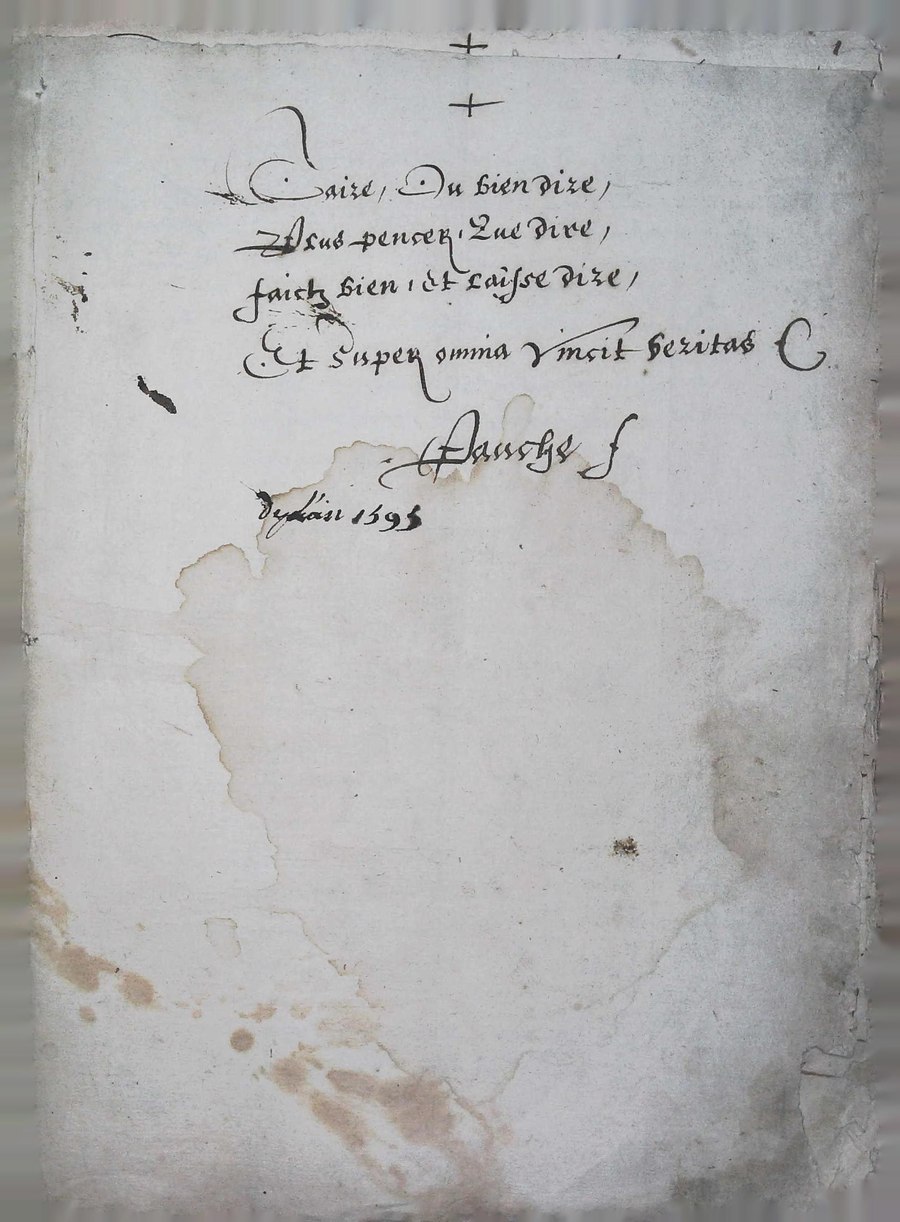 Taire, Ou bien dire,
Plus pencer, Que dire,
faictz bien, et laisse dire,
Et super omnia Vincit veritas
Fauche
de l'an 1595